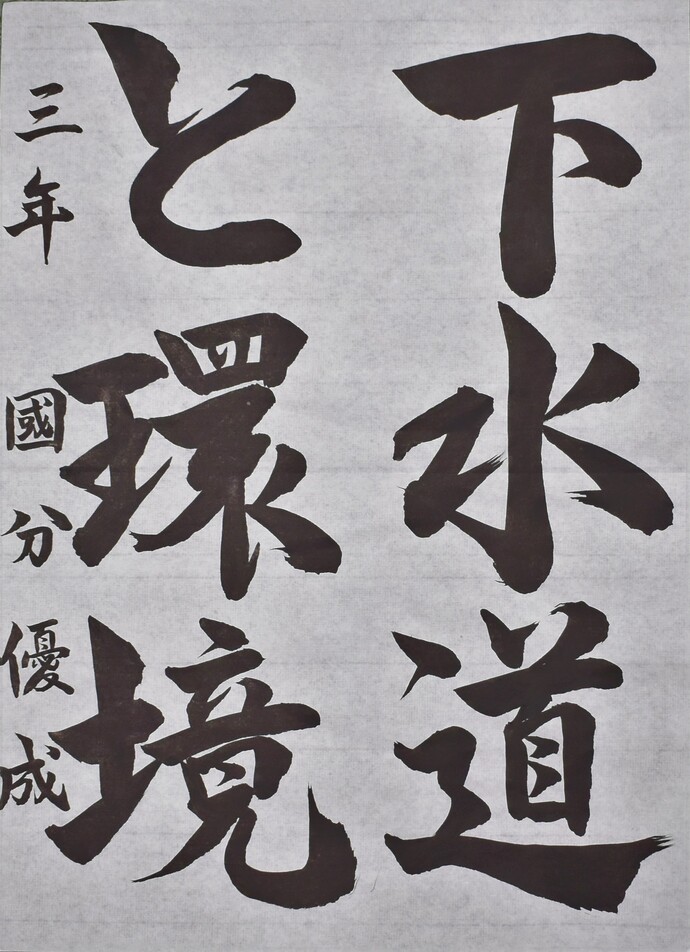 下水道
と環境
三年 國分優成